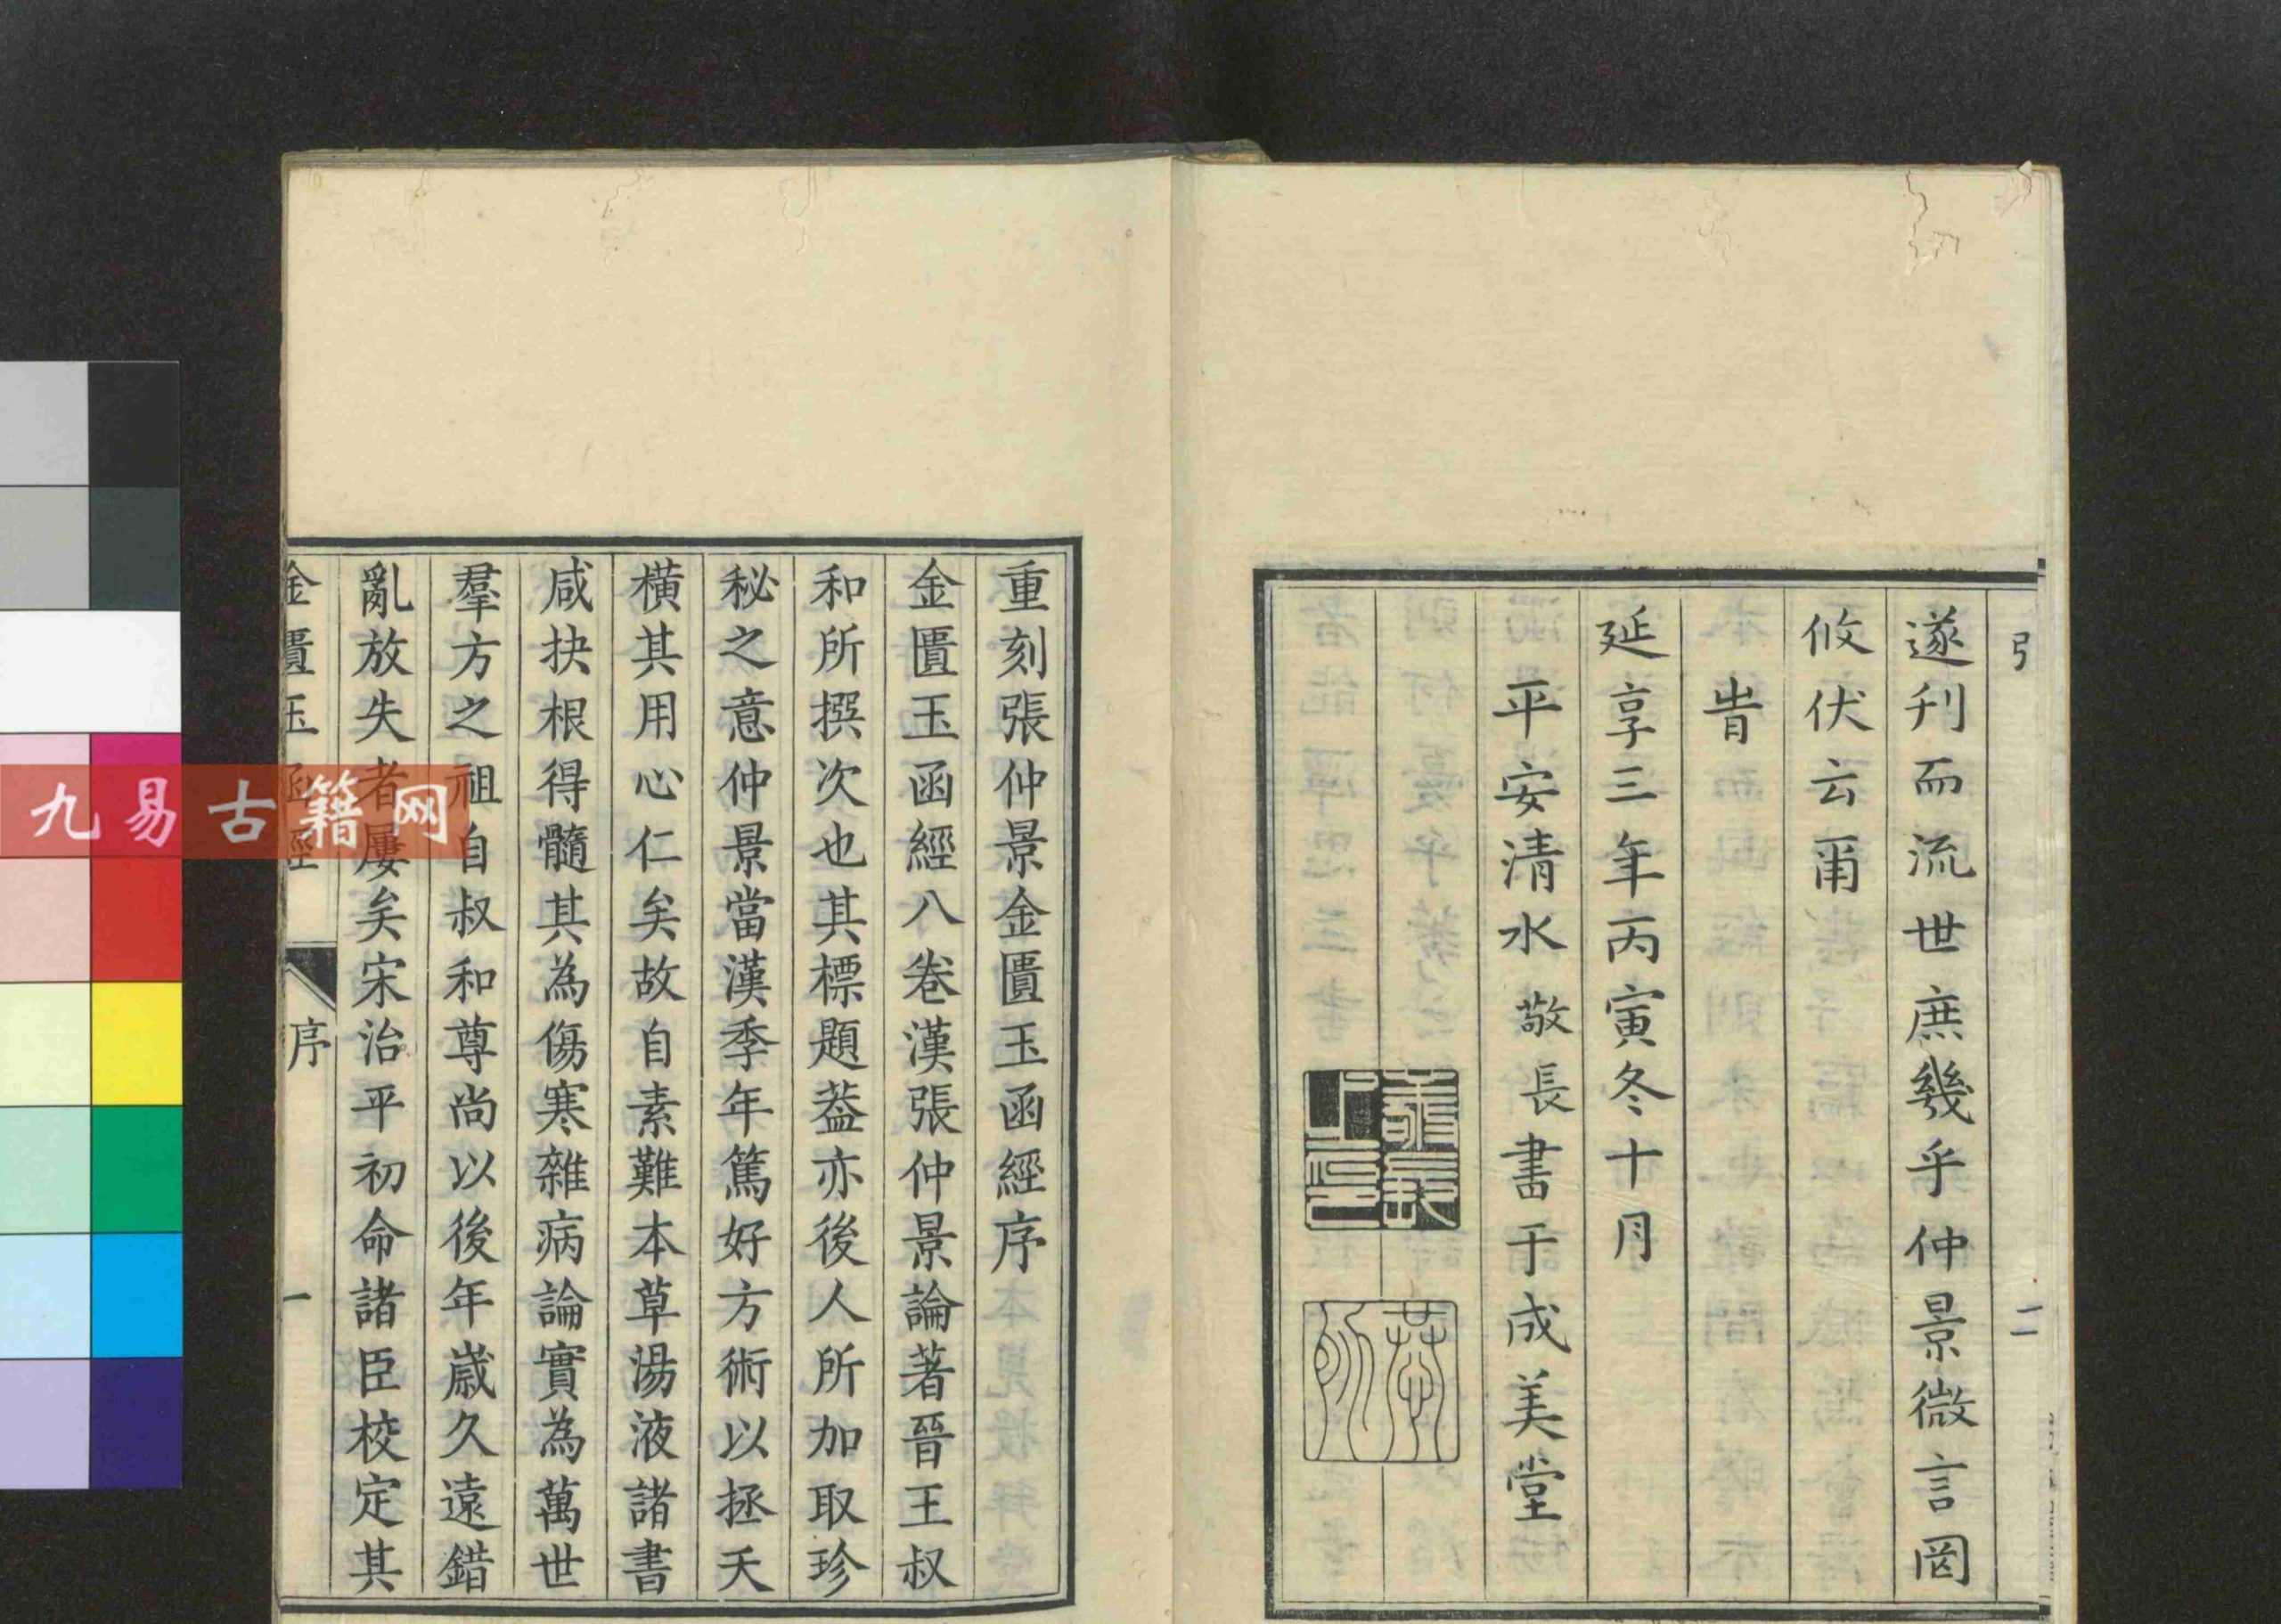 弓
二
遂刋而流世庶幾乎仲景微言罔
攸伏云甭
旹
延享三年丙寅冬十月
平安清水敬長書于成美堂
重刻張仲景金匱玉函經序
金匱玉函經八卷漢張仲景論著晉王叔
和所撰次也其標題葢亦後人所加取珍
秘之意仲景當漢季年篤好方術以拯夭
橫其用心仁矣故自素難本草湯液諸書
咸抉根得髓其為傷寒雜病論實為萬世
羣方之祖自叔和尊尚以後年嵗久遠錯
亂放失者屢矣宋治平初命諸臣校定其
金匱玉函經
序
一
九易古籍网